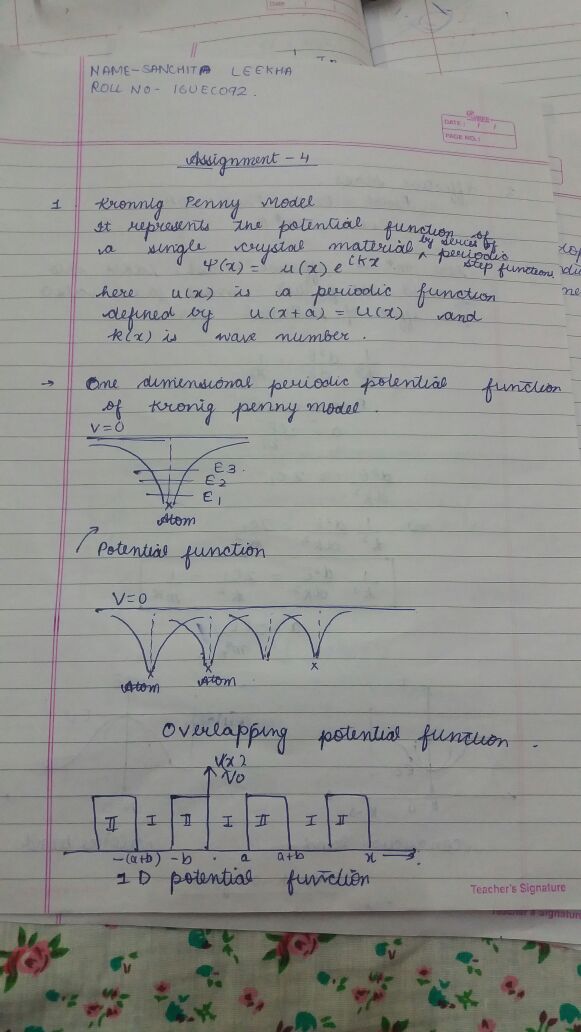 NAME-SANCHITA LEEKHA
ROLL NO- 16UEC092.
DATE: / /
PAGE NO.:
Assignment - 4
1. Kronnig Penny Model
It represents the potential function of
a single crystal material by series of periodic
step function.
Ψ(x) = u(x) e^ikx
here u(x) is a periodic function
defined by u(x+a) = u(x) and
k(x) is wave number.
→ One dimensional periodic potential function
of kronig penny model.
V=0
E3.
E2
E1
Atom
Potential function
V=0
Atom Atom
Overlapping potential function.
V0
II I II I II I II
-(a+b) -b a a+b x
1 D potential function
Teacher's Signature
Teacher's Signature